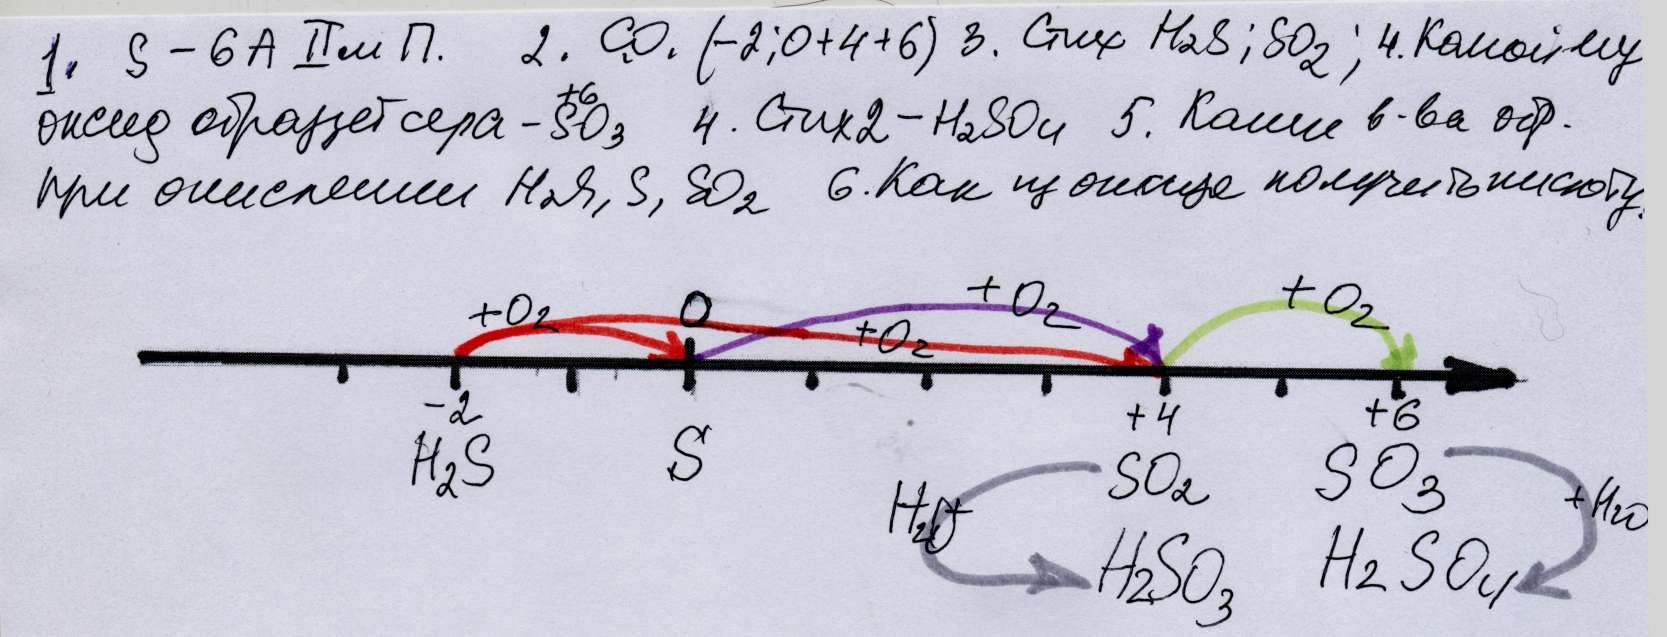 1. S – 6А III м П. 2. СО. (–2; 0 +4 +6) 3. Стих H₂S; SO₂; 4. Какой му
оксид образует сера – S⁺⁶O₃ 4. Стих 2 – H₂SO₄ 5. Какие в-ва обр.
при окислении H₂S, S, SO₂ 6. Как из оксида получить кислоту.
+O₂ 0 +O₂ +O₂ +O₂
-2 +4 +6
H₂S S SO₂ SO₃
H₂O+ +H₂O
H₂SO₃ H₂SO₄